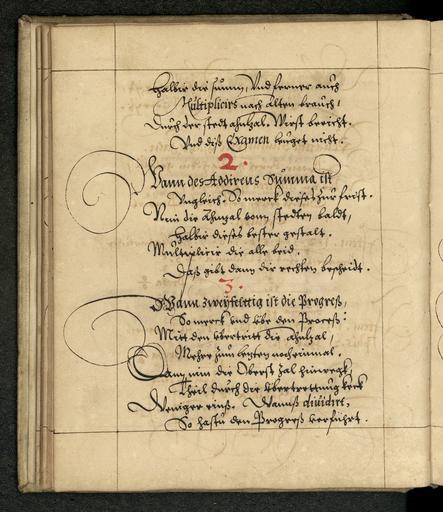 Halbir die summ, Vnd ferner auch
Multiplicirs nach Alten brauch,
Durch der stedt ahnzal. Wirst bericht.
Vnd diß Examen leuget nicht.
2.
Wann des Addirens Summa ist
Vngleich. So merck dieses zur frist.
Nim die Ahnzal vom stedten baldt,
Halbir dieses bester gestalt.
Multiplicir die alle beid.
Daß gibt dann dir rechten bescheidt.
3.
Wann zweyfelttig ist die Progreß,
So merck vnd vbe den Proceß:
Mitt den vbertritt die Ahnzal,
Mehre zum letzten noch einmal.
Dann nim die Oberst zal hinwegk,
Theil durch die vbertrettung keck
Weniger eins. Wanns diuidirt,
So hastu den Progreß verführt.